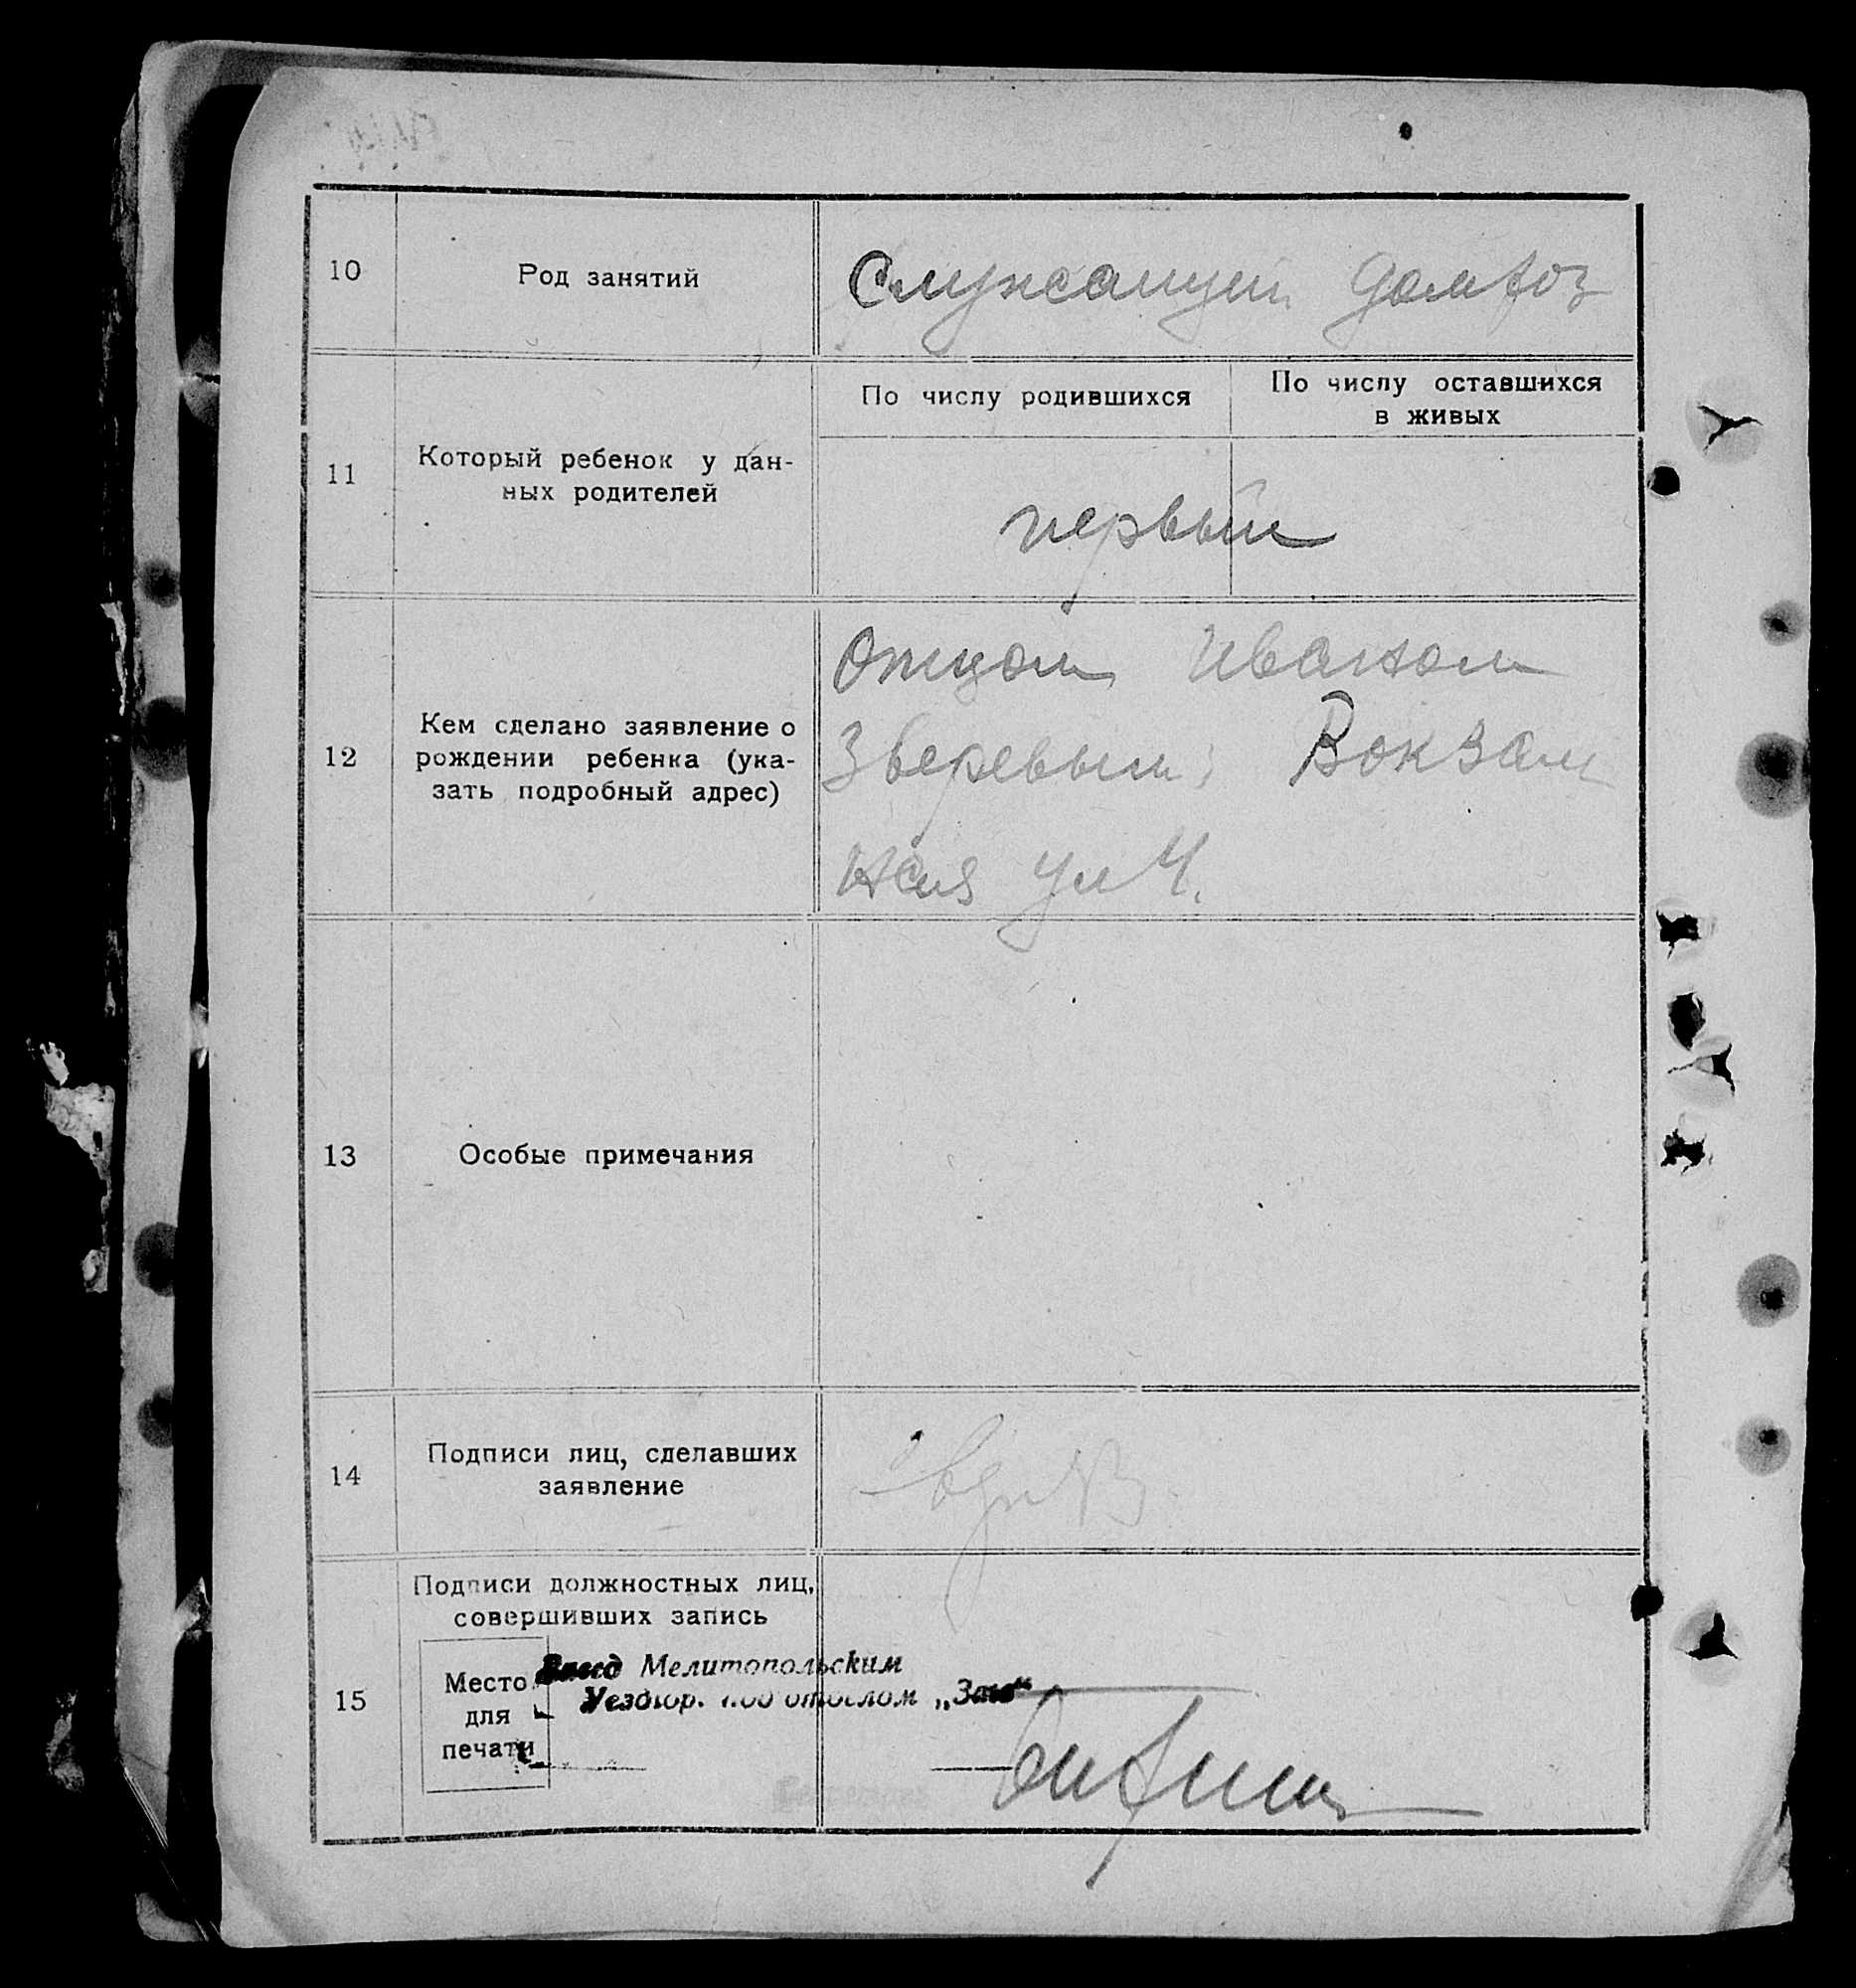 10
Род занятий
Служащий домхоз
11
Который ребенок у дан-
ных родителей
По числу родившихся
По числу оставшихся
в живых
первый
12
Кем сделано заявление о
рождении ребенка (ука-
зать подробный адрес)
Отцом Иваном
Зверевым; Вокзаль
ная ул 4.
13
Особые примечания
14
Подписи лиц, сделавших
заявление
15
Подписи должностных лиц,
совершивших запись
Место
для
печати
Завед Мелитопольским
Уездгор. под отделом „Загс“